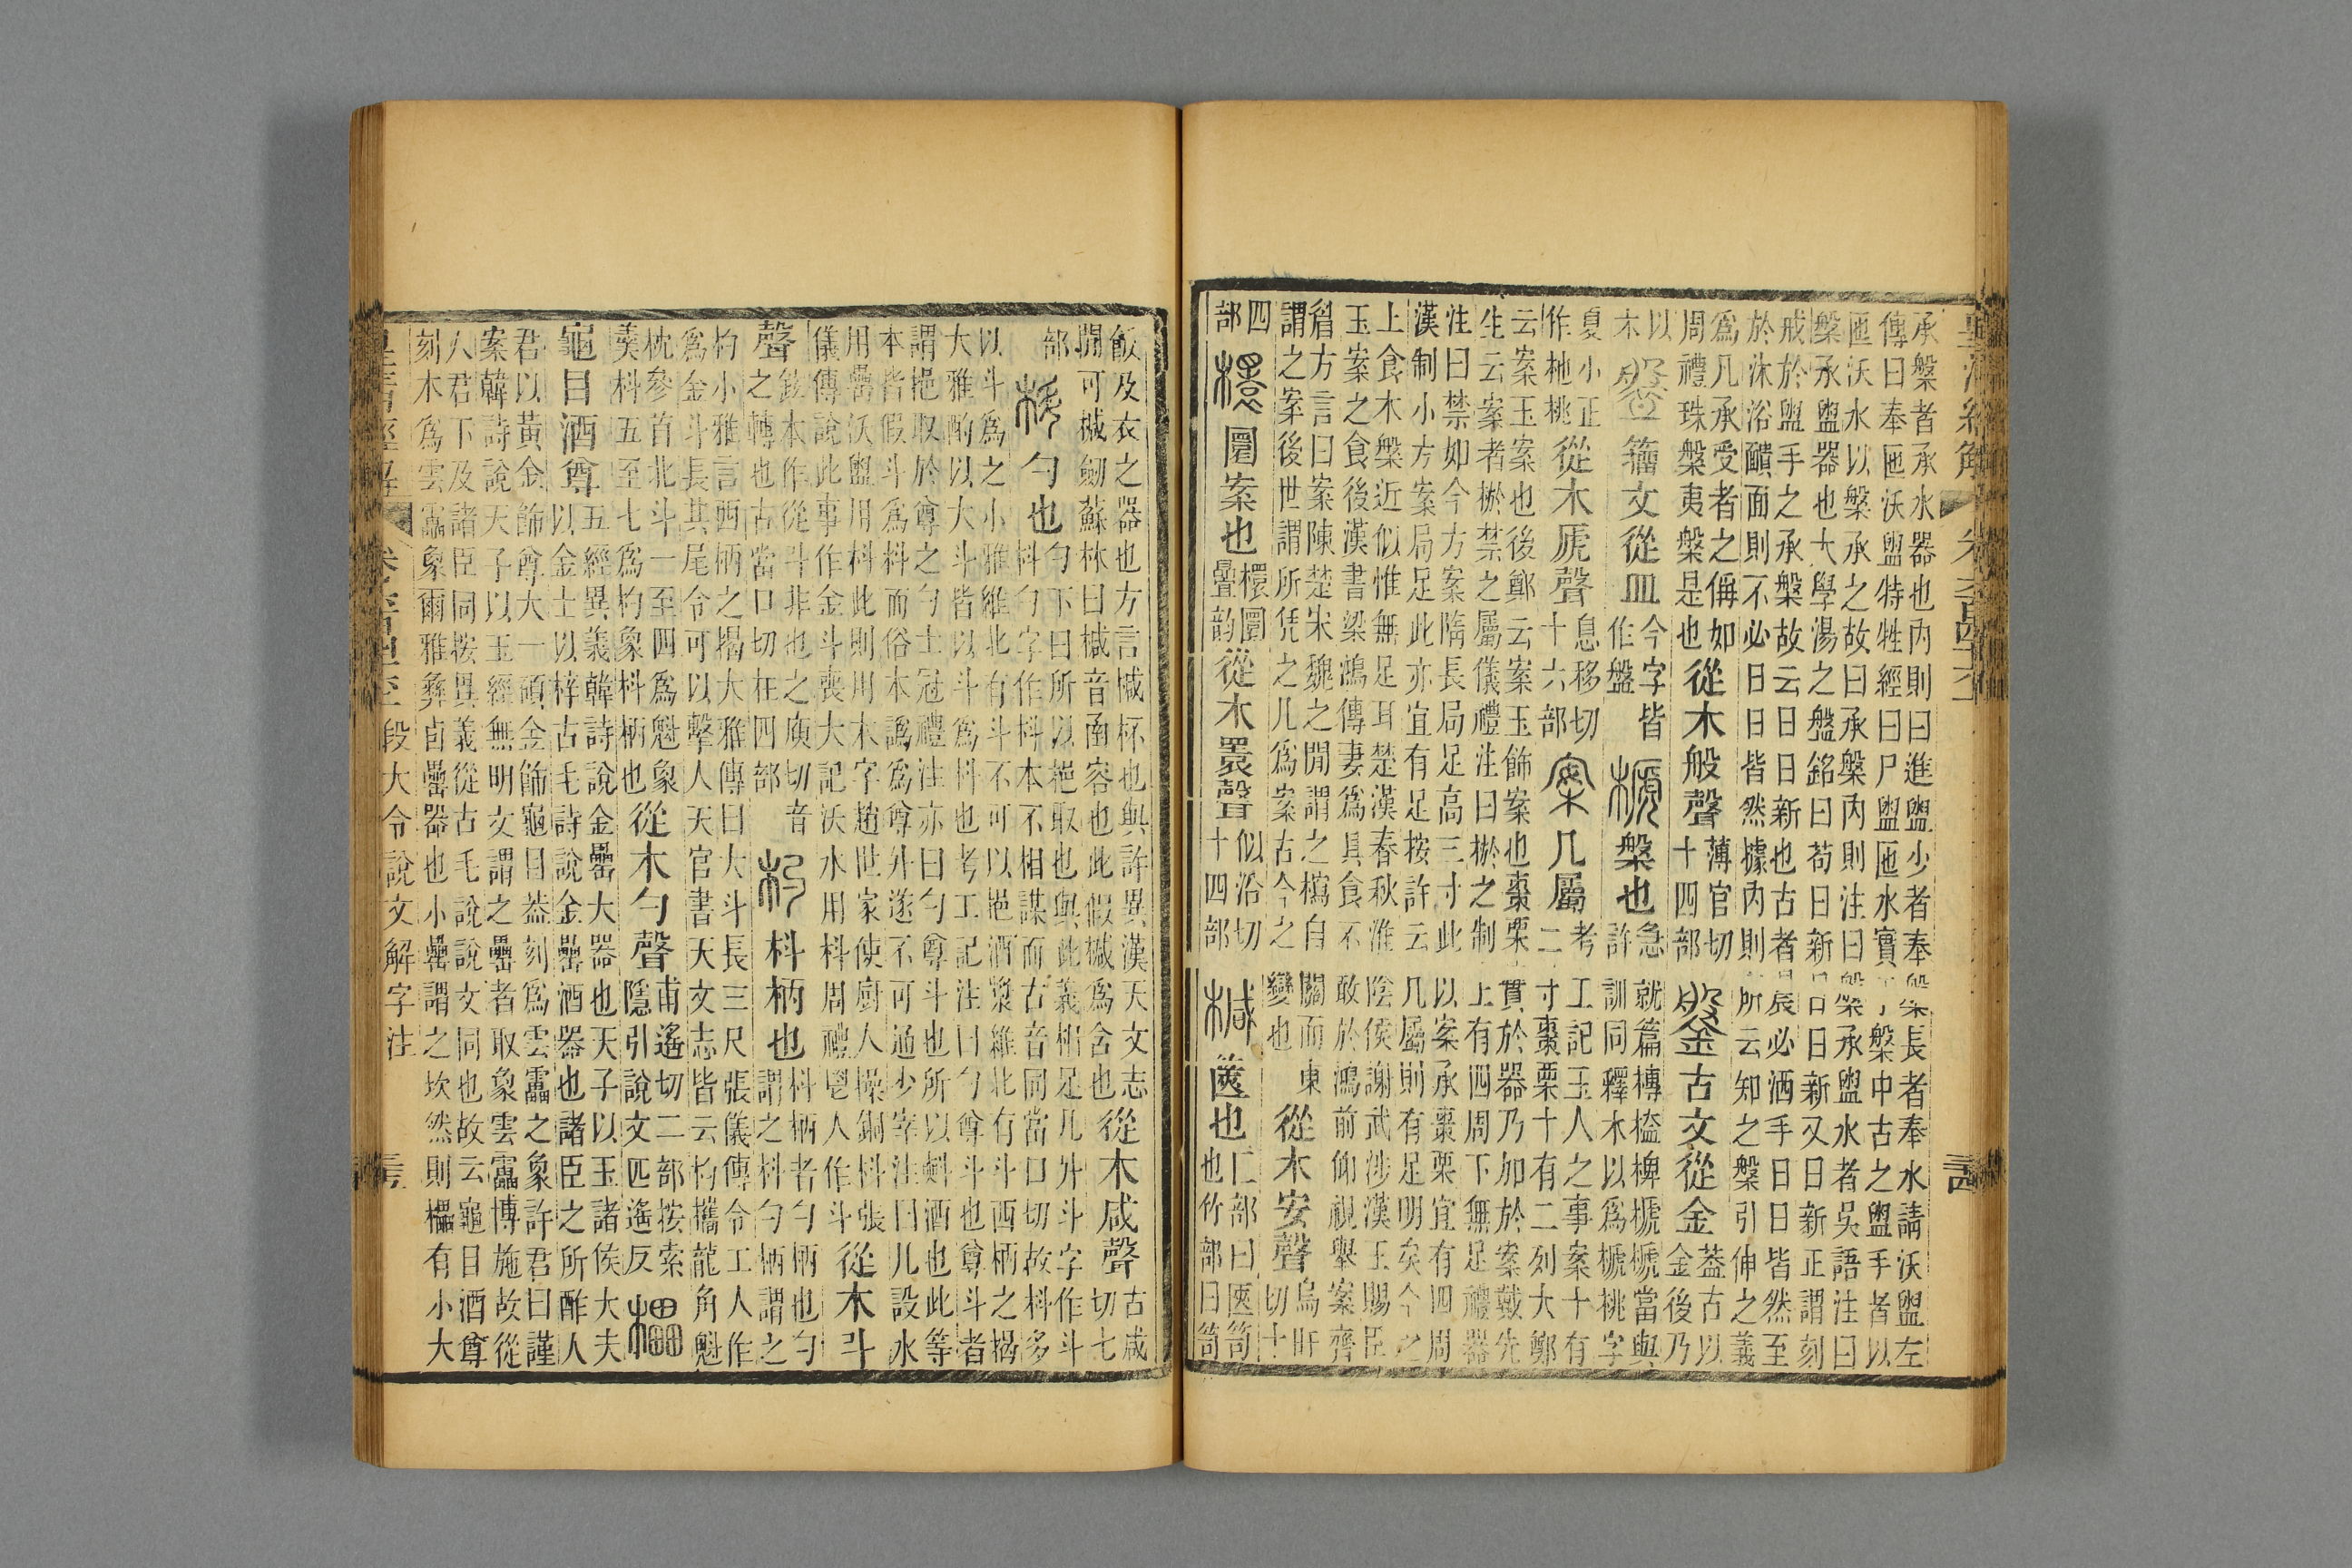 承槃者承水器也內則曰進盥少者奉槃長者奉水請沃盥左
傳曰奉匜沃盥特牲經曰尸盥匜水實于槃中古之盥手者以
匜沃水以槃承之故曰承槃內則注曰槃承盥水者吳語注曰
槃承盥器也大學湯之盤銘曰苟日新日日新又日新正謂刻
戒於盥手之承槃故云日日新也古者晨必洒手日日皆然至
於沐浴靧面則不必日日皆然據內則所云知之槃引伸之義
爲凡承受者之偁如
周禮珠槃夷槃是也
從木般聲
薄官切
十四部
鎜古文從金
蓋古以
金後乃
以
木
盤籒文從皿
今字皆
作盤
榹槃也
急就篇槫榼椑榹榹當與
許訓同釋木以爲榹桃字
夏小正
作杝桃
從木虒聲
息移切
十六部
案几屬
考工記玉人之事案十有
二寸棗栗十有二列大鄭
云案玉案也後鄭云案玉飾案也棗栗實於器乃加於案戴先
生云案者棜禁之屬儀禮注曰棜之制上有四周下無足禮器
注曰禁如今方案隋長局足高三寸此以案承棗栗宜有四周
漢制小方案局足此亦宜有足按許云几屬則有足明矣今之
上食木槃近似惟無足耳楚漢春秋淮陰侯謝武涉漢王賜臣
玉案之食後漢書梁鴻傳妻爲具食不敢於鴻前仰視舉案齊
眉方言曰案陳楚宋魏之閒謂之㭒自關而東
謂之案後世謂所凭之几爲案古今之變也
從木安聲
烏旰
切十
四
部
檈圜案也
檈圜
疊韵
從木瞏聲
似沿切
十四部
椷篋也
匚部曰匧笥
也竹部曰笥
飯及衣之器也方言椷杯也與許異漢天文志
閒可椷劒蘇林曰椷音函容也此假椷爲含也
從木咸聲
古咸
切七
部
枓勺也
勺下曰所以挹取也與此義相足凡升斗字作斗
枓勺字作枓本不相謀而古音同當口切故枓多
以斗爲之小雅維北有斗不可以挹酒漿維北有斗西柄之揭
大雅酌以大斗皆以斗爲枓也考工記注曰勺尊斗也尊斗者
謂挹取於尊之勺士冠禮注亦曰勺尊斗也所以㪺酒也此等
本皆假斗爲枓而俗本譌爲尊升遂不可通少牢注曰凡設水
用罍沃盥用枓此則用木字趙世家使廚人操銅枓張
儀傳說此事作金斗喪大記沃水用枓周禮鬯人作斗
從木斗
聲
鉉本作從斗非也之庾切音
之轉也古當口切在四部
杓枓柄也
枓柄者勺柄也勺
謂之枓勺柄謂之
杓小雅言西柄之揭大雅傳曰大斗長三尺張儀傳令工人作
爲金斗長其尾令可以擊人天官書天文志皆云杓攜龍角魁
枕參首北斗一至四爲魁象
羹枓五至七爲杓象枓柄也
從木勺聲
甫遙切二部按索
隱引說文匹遙反
櫑
龜目酒尊
五經異義韓詩說金罍大器也天子以玉諸矦大夫
以金士以梓古毛詩說金罍酒器也諸臣之所酢人
君以黃金飾尊大一碩金飾龜目葢刻爲雲靁之象許君曰謹
案韓詩說天子以玉經無明文謂之罍者取象雲靁博施故從
人君下及諸臣同按異義從古毛說說文同也故云龜目酒尊
刻木爲雲靁象爾雅彝卣罍器也小罍謂之坎然則櫑有小大
段大令說文解字注